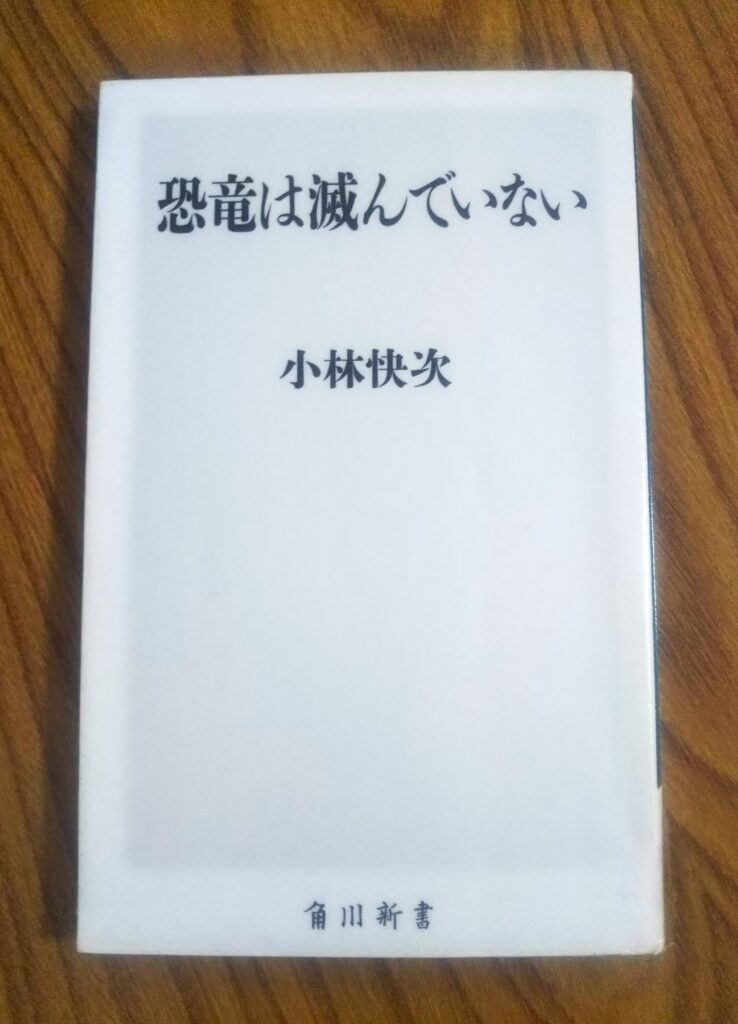 恐竜は滅んでいない
小林快次
角川新書